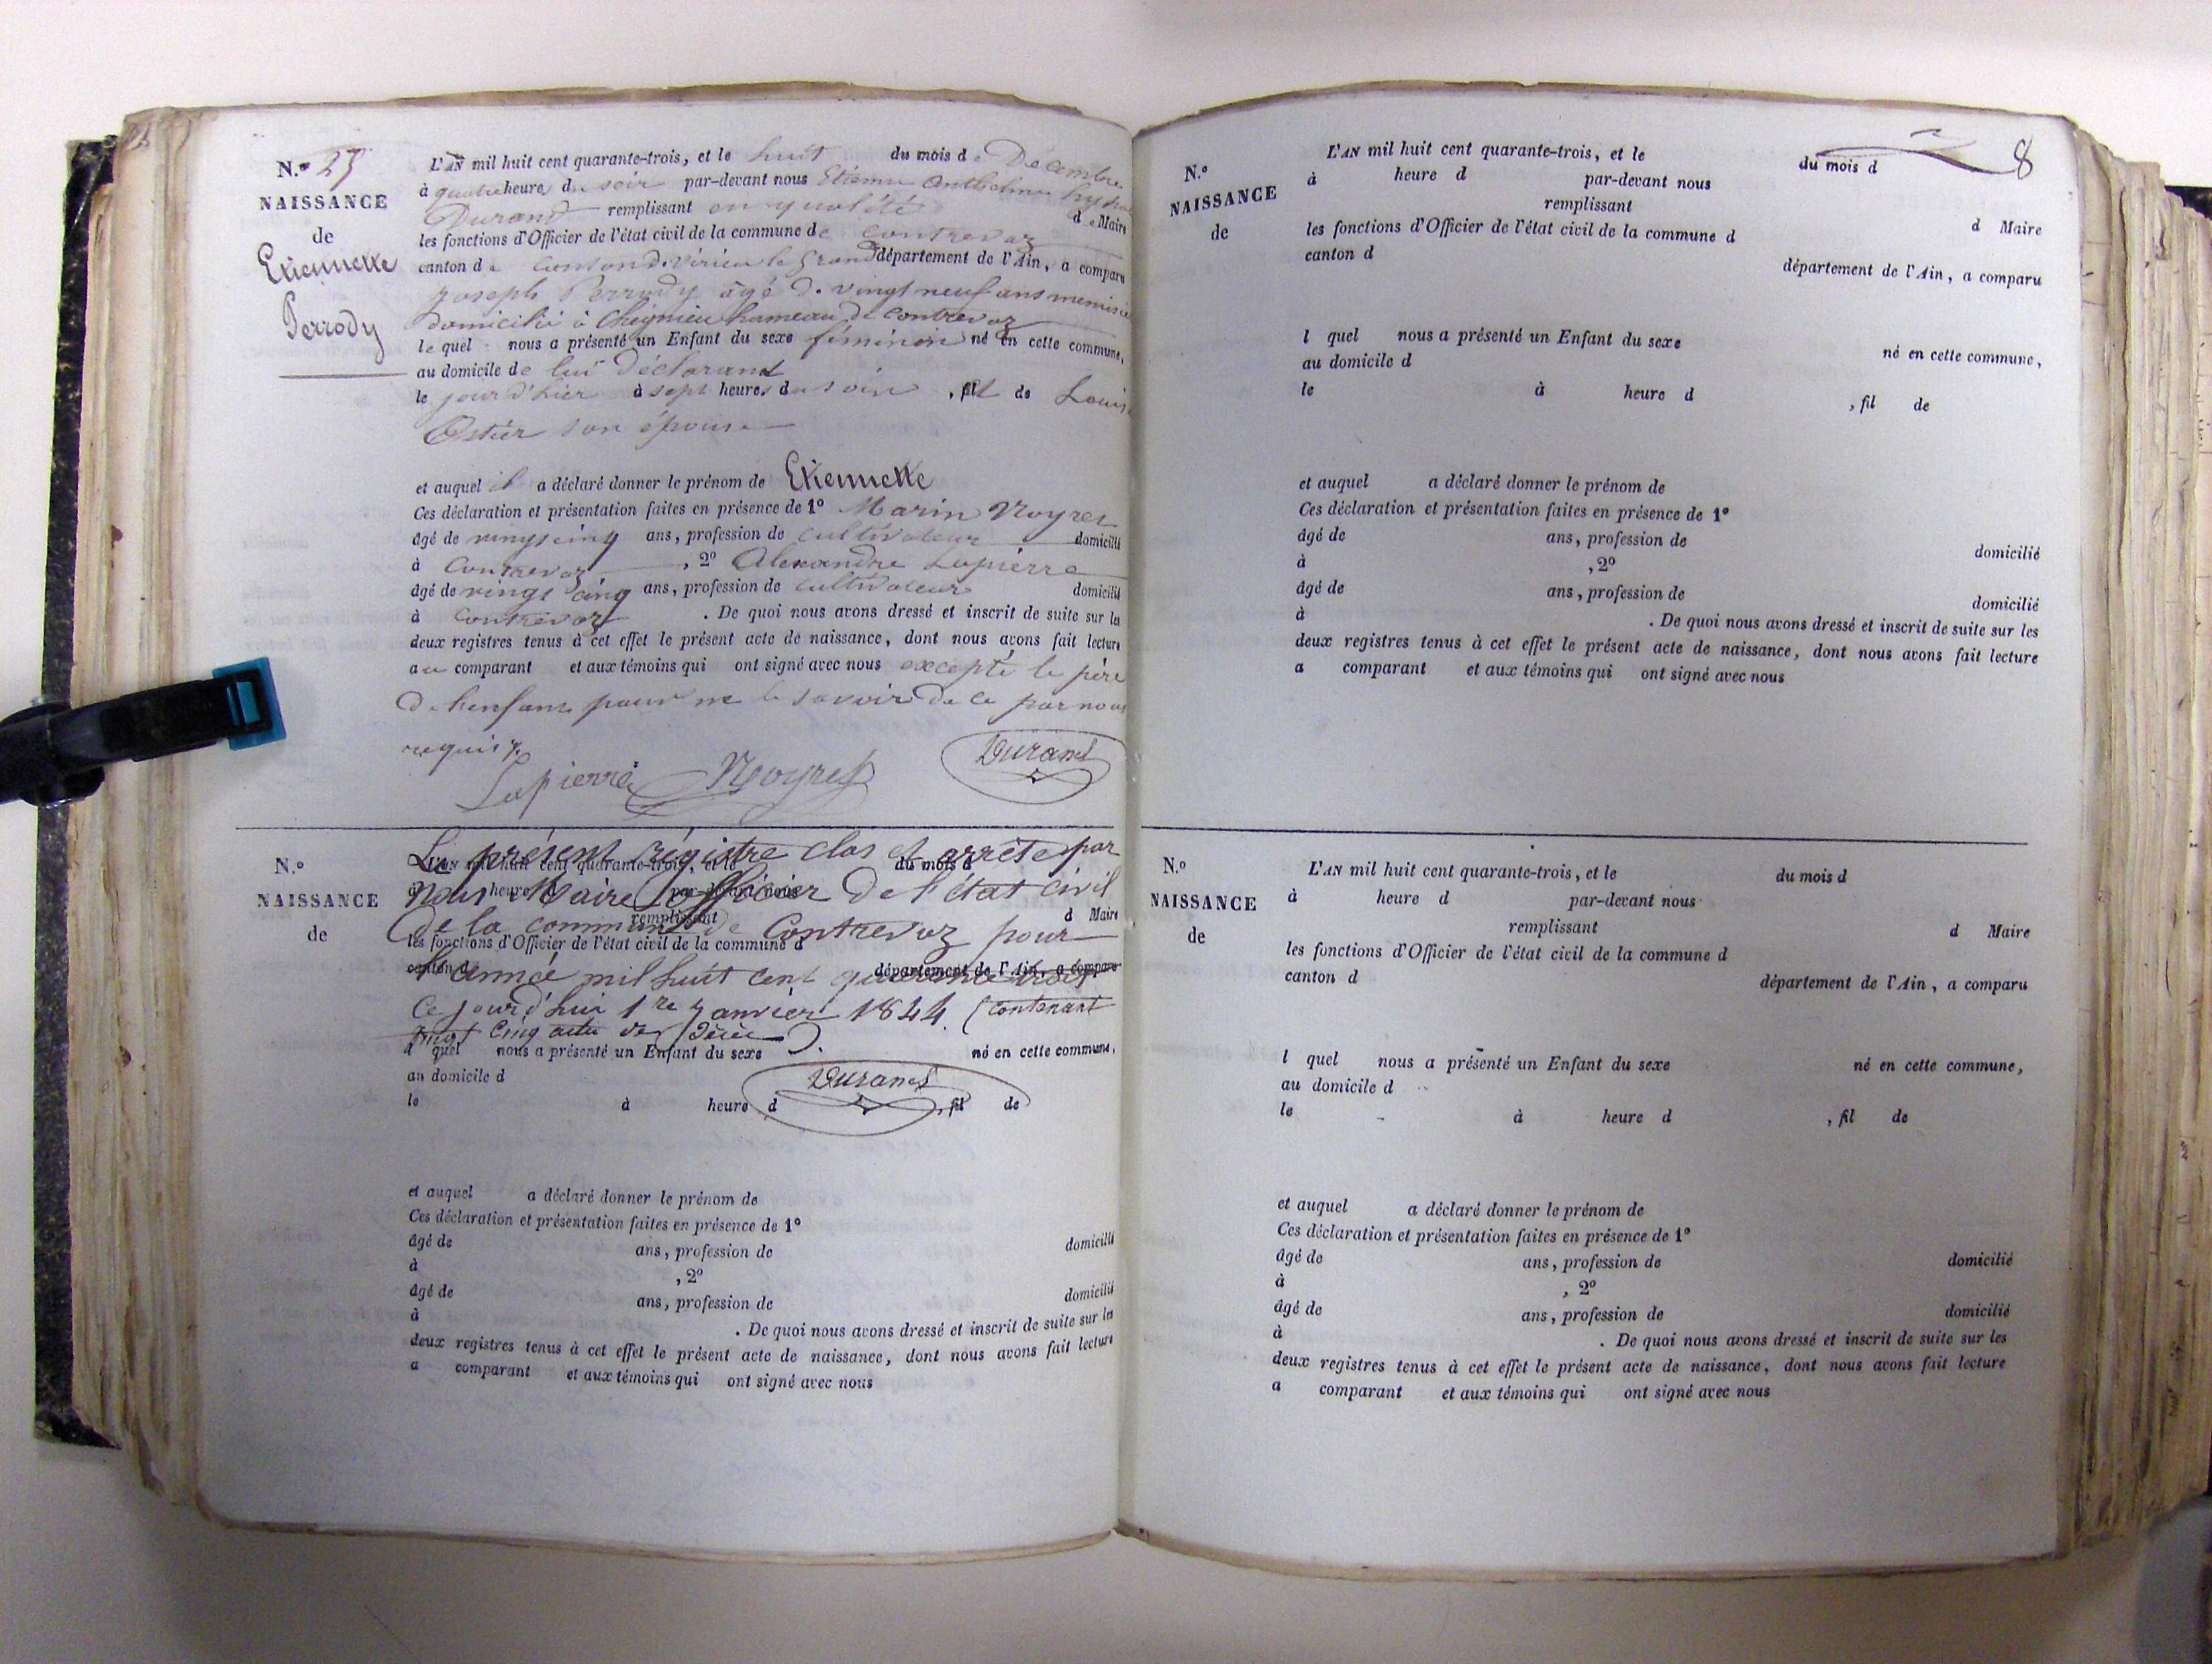 N.º 25
NAISSANCE
de
Etiennette
Perrody
L'AN mil huit cent quarante-trois, et le huit du mois de Décembre
à quatre heures du soir par-devant nous Etienne Anthelme
Durand remplissant en qualité de Maire
les fonctions d'Officier de l'état civil de la commune de Contrevoz
canton de Virieu le Grand département de l'Ain, a comparu
Joseph Perrody âgé de vingt neuf ans
domicilié à Cheignieu hameau de Contrevoz
lequel nous a présenté un Enfant du sexe féminin né en cette commune,
au domicile de lui Déclarant
le jour d'hier à sept heures du soir, fil de Louise
Ostier son épouse
et auquel il a déclaré donner le prénom de Etiennette
Ces déclaration et présentation faites en présence de 1º Marin Noyret
âgé de vingt cinq ans, profession de cultivateur domicilié
à Contrevoz, 2º Alexandre Lapierre
âgé de vingt cinq ans, profession de cultivateur domicilié
à Contrevoz. De quoi nous avons dressé et inscrit de suite sur les
deux registres tenus à cet effet le présent acte de naissance, dont nous avons fait lecture
au comparant et aux témoins qui ont signé avec nous excepté le père
de l'enfant pour ne le savoir de ce par nous
requis
Lapierre Noyret Durand
N.º
NAISSANCE
de
L'AN mil huit cent quarante-trois, et le du mois d
Le présent régistre clos et arrêté par
à heure d par-devant nous
nous Maire officier De l'état civil
remplissant d Maire
De la commune de Contrevoz pour
les fonctions d'Officier de l'état civil de la commune d
canton d département de l'Ain, a comparu
l'année mil huit cent quarante trois
Ce jourd'hui 1re Janvier 1844 (contenant
vingt Cinq actes
l quel nous a présenté un Enfant du sexe né en cette commune,
au domicile d
Durand
le à heure d , fil de
et auquel a déclaré donner le prénom de
Ces déclaration et présentation faites en présence de 1º
âgé de ans, profession de domicilié
à , 2º
âgé de ans, profession de domicilié
à . De quoi nous avons dressé et inscrit de suite sur les
deux registres tenus à cet effet le présent acte de naissance, dont nous avons fait lecture
a comparant et aux témoins qui ont signé avec nous
8
N.º
NAISSANCE
de
L'AN mil huit cent quarante-trois, et le du mois d
à heure d par-devant nous
remplissant
les fonctions d'Officier de l'état civil de la commune d d Maire
canton d département de l'Ain, a comparu
l quel nous a présenté un Enfant du sexe né en cette commune,
au domicile d
le à heure d , fil de
et auquel a déclaré donner le prénom de
Ces déclaration et présentation faites en présence de 1º
âgé de ans, profession de domicilié
à , 2º
âgé de ans, profession de domicilié
à . De quoi nous avons dressé et inscrit de suite sur les
deux registres tenus à cet effet le présent acte de naissance, dont nous avons fait lecture
a comparant et aux témoins qui ont signé avec nous
N.º
NAISSANCE
de
L'AN mil huit cent quarante-trois, et le du mois d
à heure d par-devant nous
remplissant d Maire
les fonctions d'Officier de l'état civil de la commune d
canton d département de l'Ain, a comparu
l quel nous a présenté un Enfant du sexe né en cette commune,
au domicile d
le à heure d , fil de
et auquel a déclaré donner le prénom de
Ces déclaration et présentation faites en présence de 1º
âgé de ans, profession de domicilié
à , 2º
âgé de ans, profession de domicilié
à . De quoi nous avons dressé et inscrit de suite sur les
deux registres tenus à cet effet le présent acte de naissance, dont nous avons fait lecture
a comparant et aux témoins qui ont signé avec nous